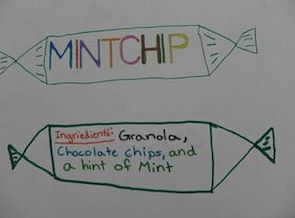 MINTCHIP
Ingriedients: Granola,
Chocolate chips, and
a hint of Mint